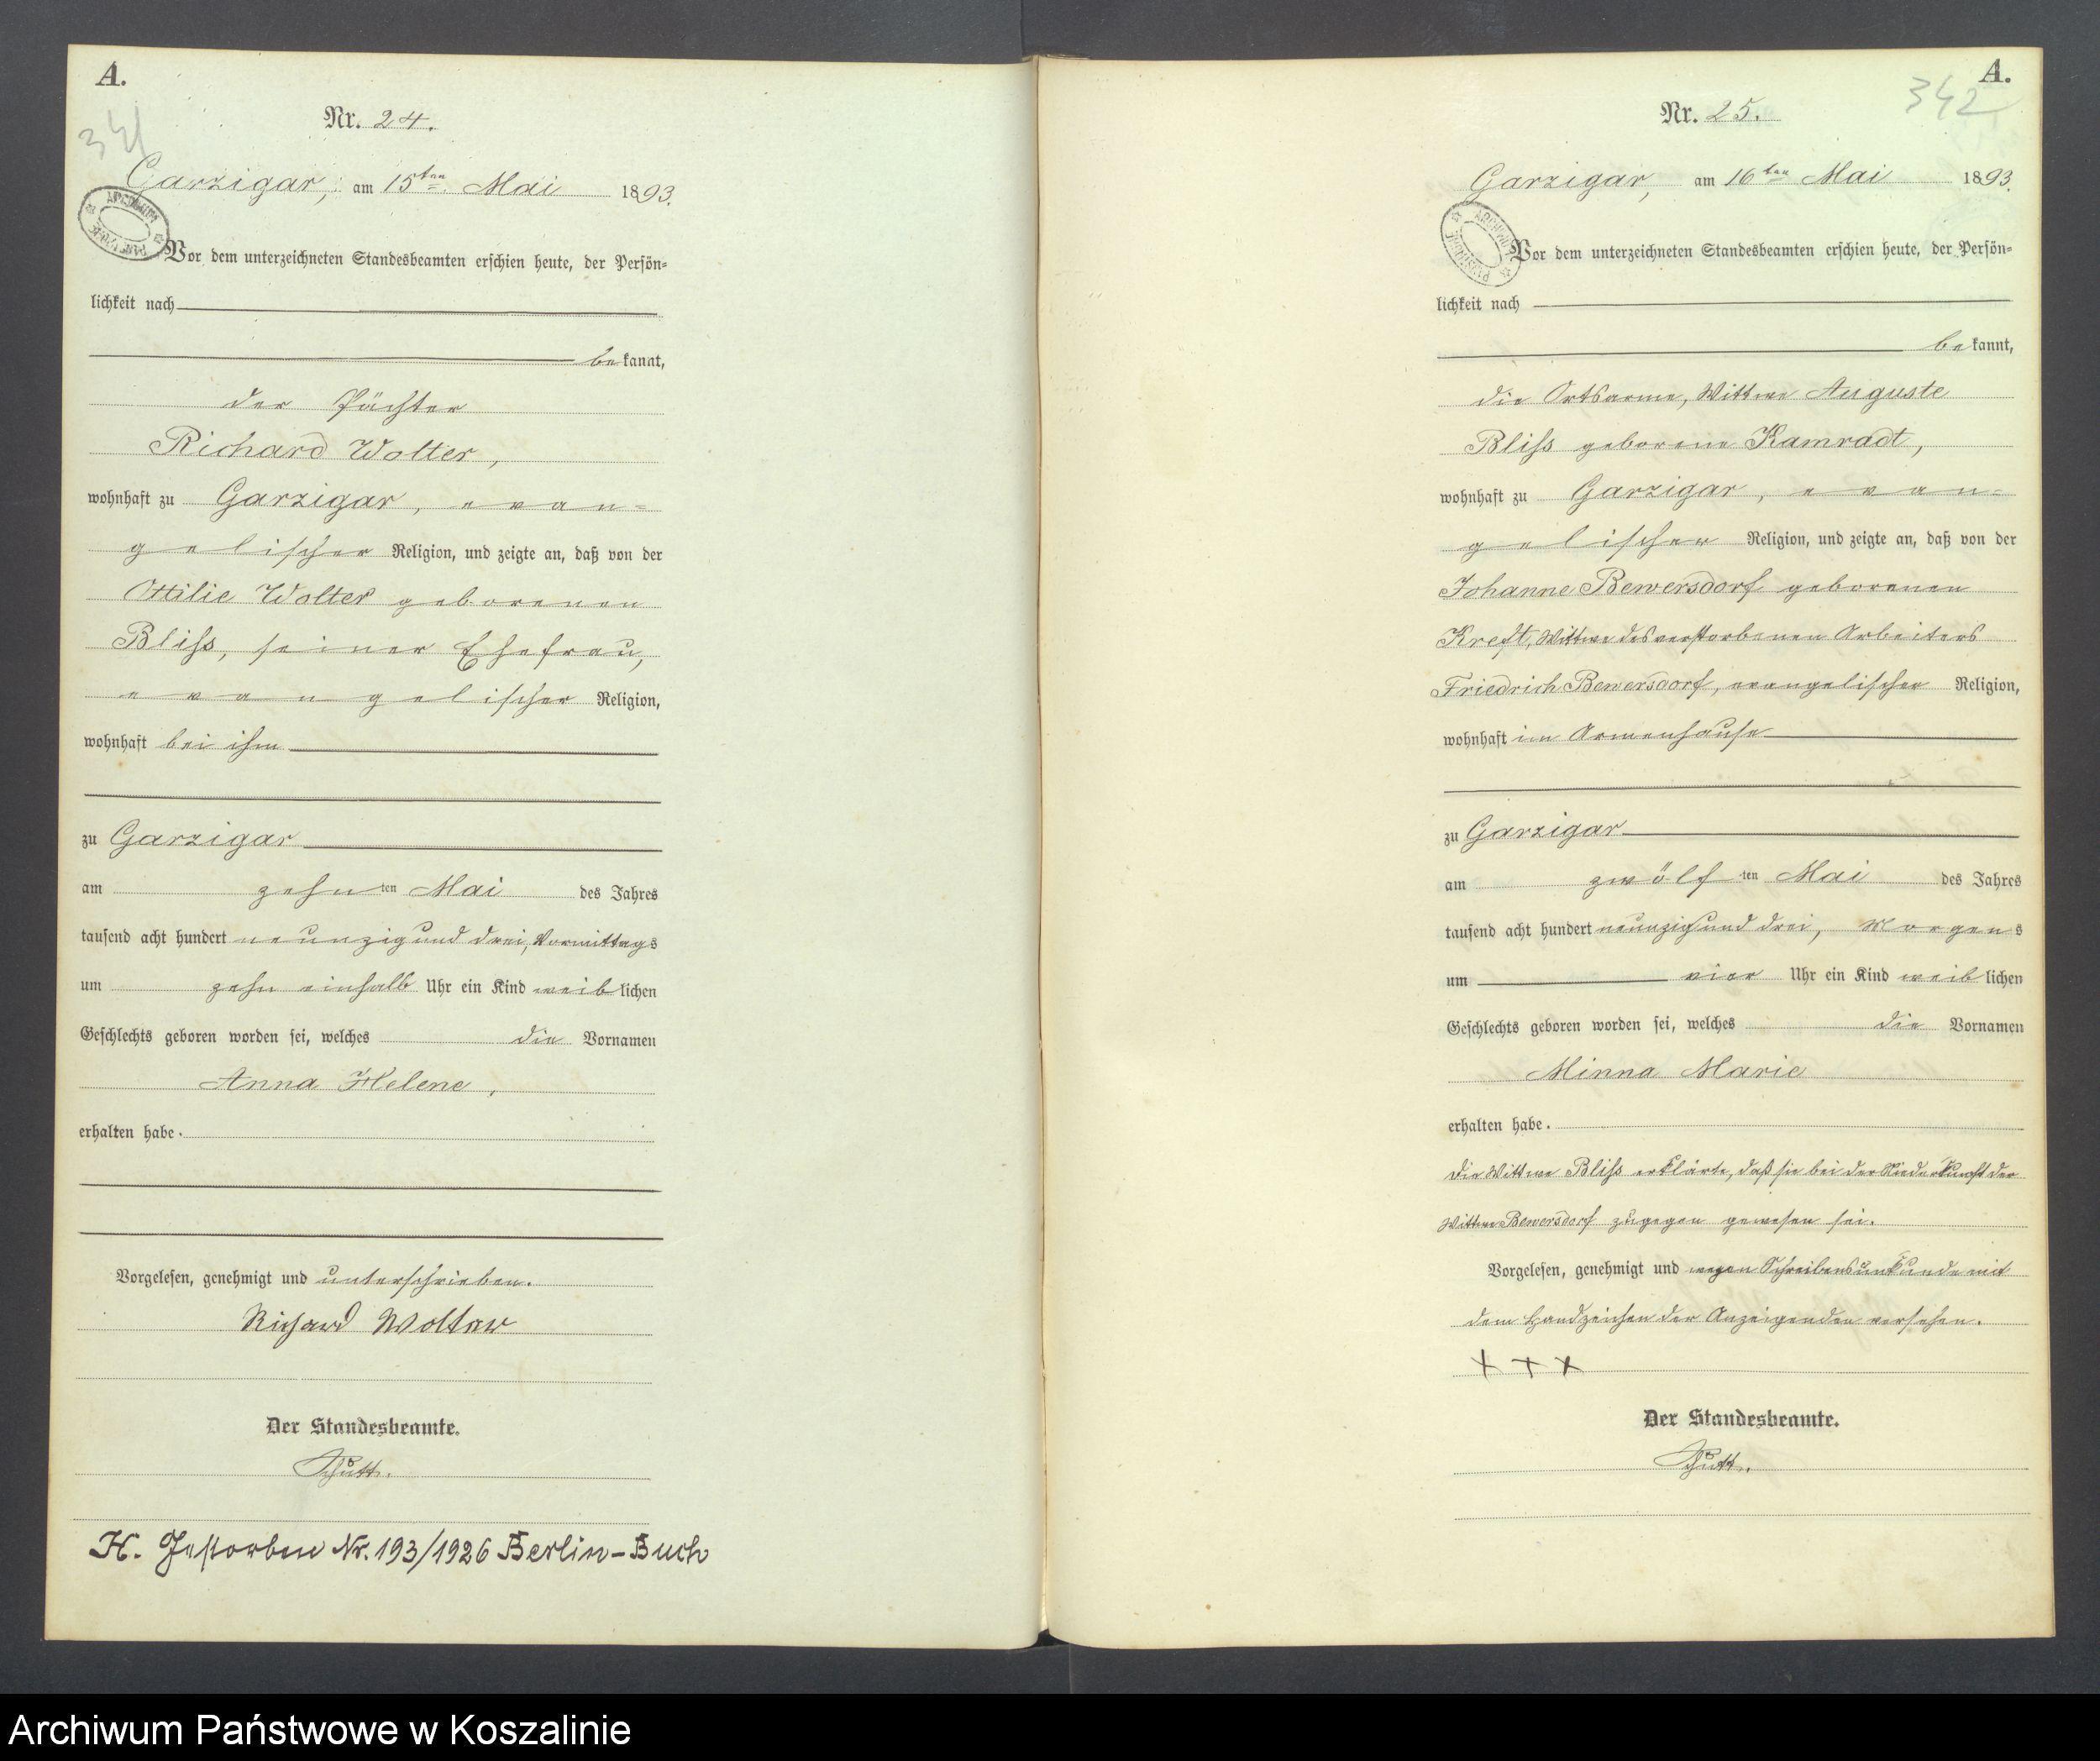 A.
341
Nr. 24.
Garzigar, am 15ten Mai 1893.
ARCHIWUM PAŃSTWOWE
Vor dem unterzeichneten Standesbeamten erschien heute, der Persön-
lichkeit nach
bekannt,
der Pächter
Richard Wolter,
wohnhaft zu Garzigar, evan-
gelischer Religion, und zeigte an, daß von der
Ottilie Wolter geborenen
Bliss, seiner Ehefrau,
evangelischer Religion,
wohnhaft bei ihm
zu Garzigar
am zehnten Mai des Jahres
tausend acht hundert neunzig und drei, Vormittags
um zehn einhalb Uhr ein Kind weiblichen
Geschlechts geboren worden sei, welches die Vornamen
Anna Helene,
erhalten habe.
Vorgelesen, genehmigt und unterschrieben.
Richard Wolter
Der Standesbeamte.
Schütt.
H. Gestorben Nr. 193/1926 Berlin-Buch
A.
342
Nr. 25.
Garzigar, am 16ten Mai 1893.
ARCHIWUM PAŃSTWOWE
Vor dem unterzeichneten Standesbeamten erschien heute, der Persön-
lichkeit nach
bekannt,
die Ortsarme, Wittwe Auguste
Bliss geborene Kamradt,
wohnhaft zu Garzigar, evan-
gelischer Religion, und zeigte an, daß von der
Johanne Bewersdorf geborenen
Kreft, Wittwe des verstorbenen Arbeiters
Friedrich Bewersdorf, evangelischer Religion,
wohnhaft im Armenhause
zu Garzigar
am zwölften Mai des Jahres
tausend acht hundert neunzig und drei, Morgens
um vier Uhr ein Kind weiblichen
Geschlechts geboren worden sei, welches die Vornamen
Minna Marie
erhalten habe.
Die Wittwe Bliss erklärte, daß sie bei der Niederkunft der
Wittwe Bewersdorf zugegen gewesen sei.
Vorgelesen, genehmigt und wegen Schreibensunkunde mit
dem Handzeichen der Anzeigenden versehen.
+ + +
Der Standesbeamte.
Schütt.
Archiwum Państwowe w Koszalinie